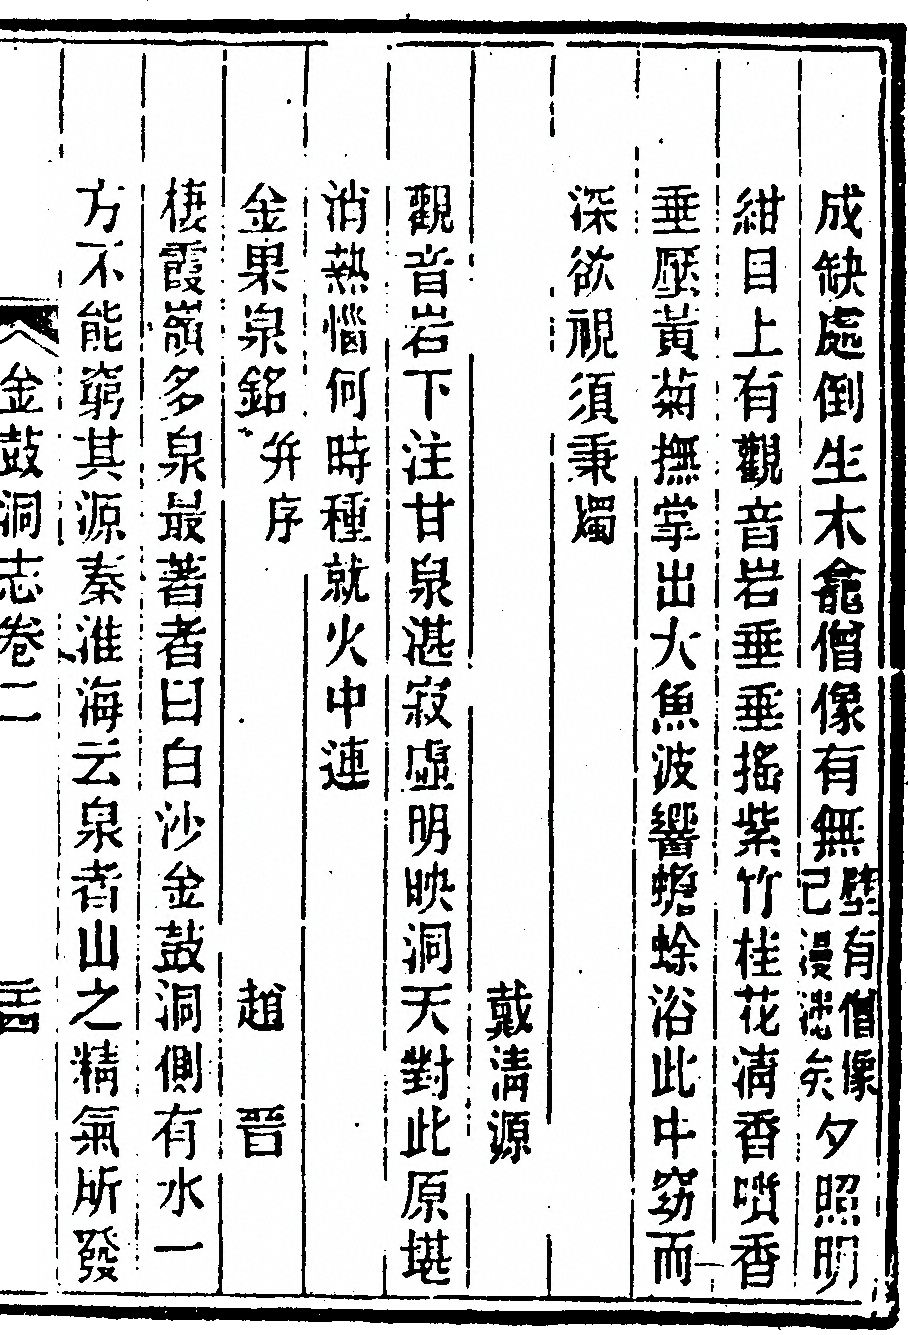 成缺處倒生木龕僧像有無壁有僧像已漫漶矣夕照明
紺目上有觀音岩垂垂搖紫竹桂花清香噴香
垂壓黃菊撫掌出大魚波響蟾蜍浴此中窈而
深欲視須秉燭
戴清源
觀音岩下注甘泉湛寂虛明映洞天對此原堪
消熱惱何時種就火中連
金果泉銘并序
趙晉
棲霞嶺多泉最著者曰白沙金鼓洞側有水一
方不能窮其源秦淮海云泉者山之精氣所發
金鼓洞志卷二